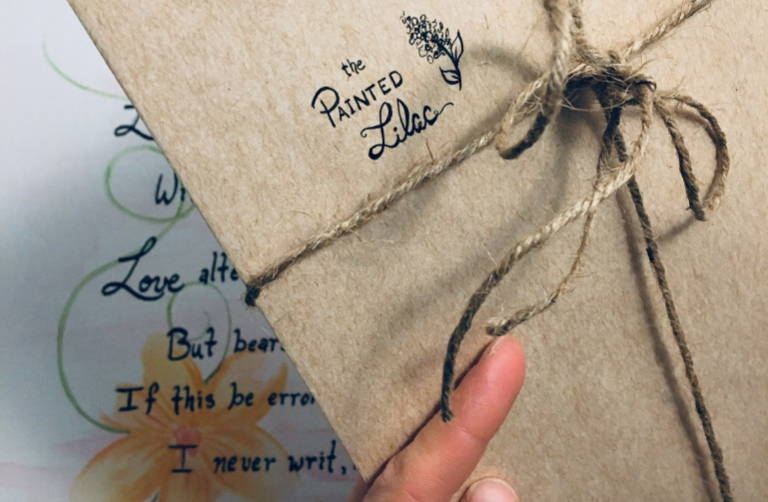 the
PAINTED
Lilac
Love alte
But bear
If this be erro
I never writ,